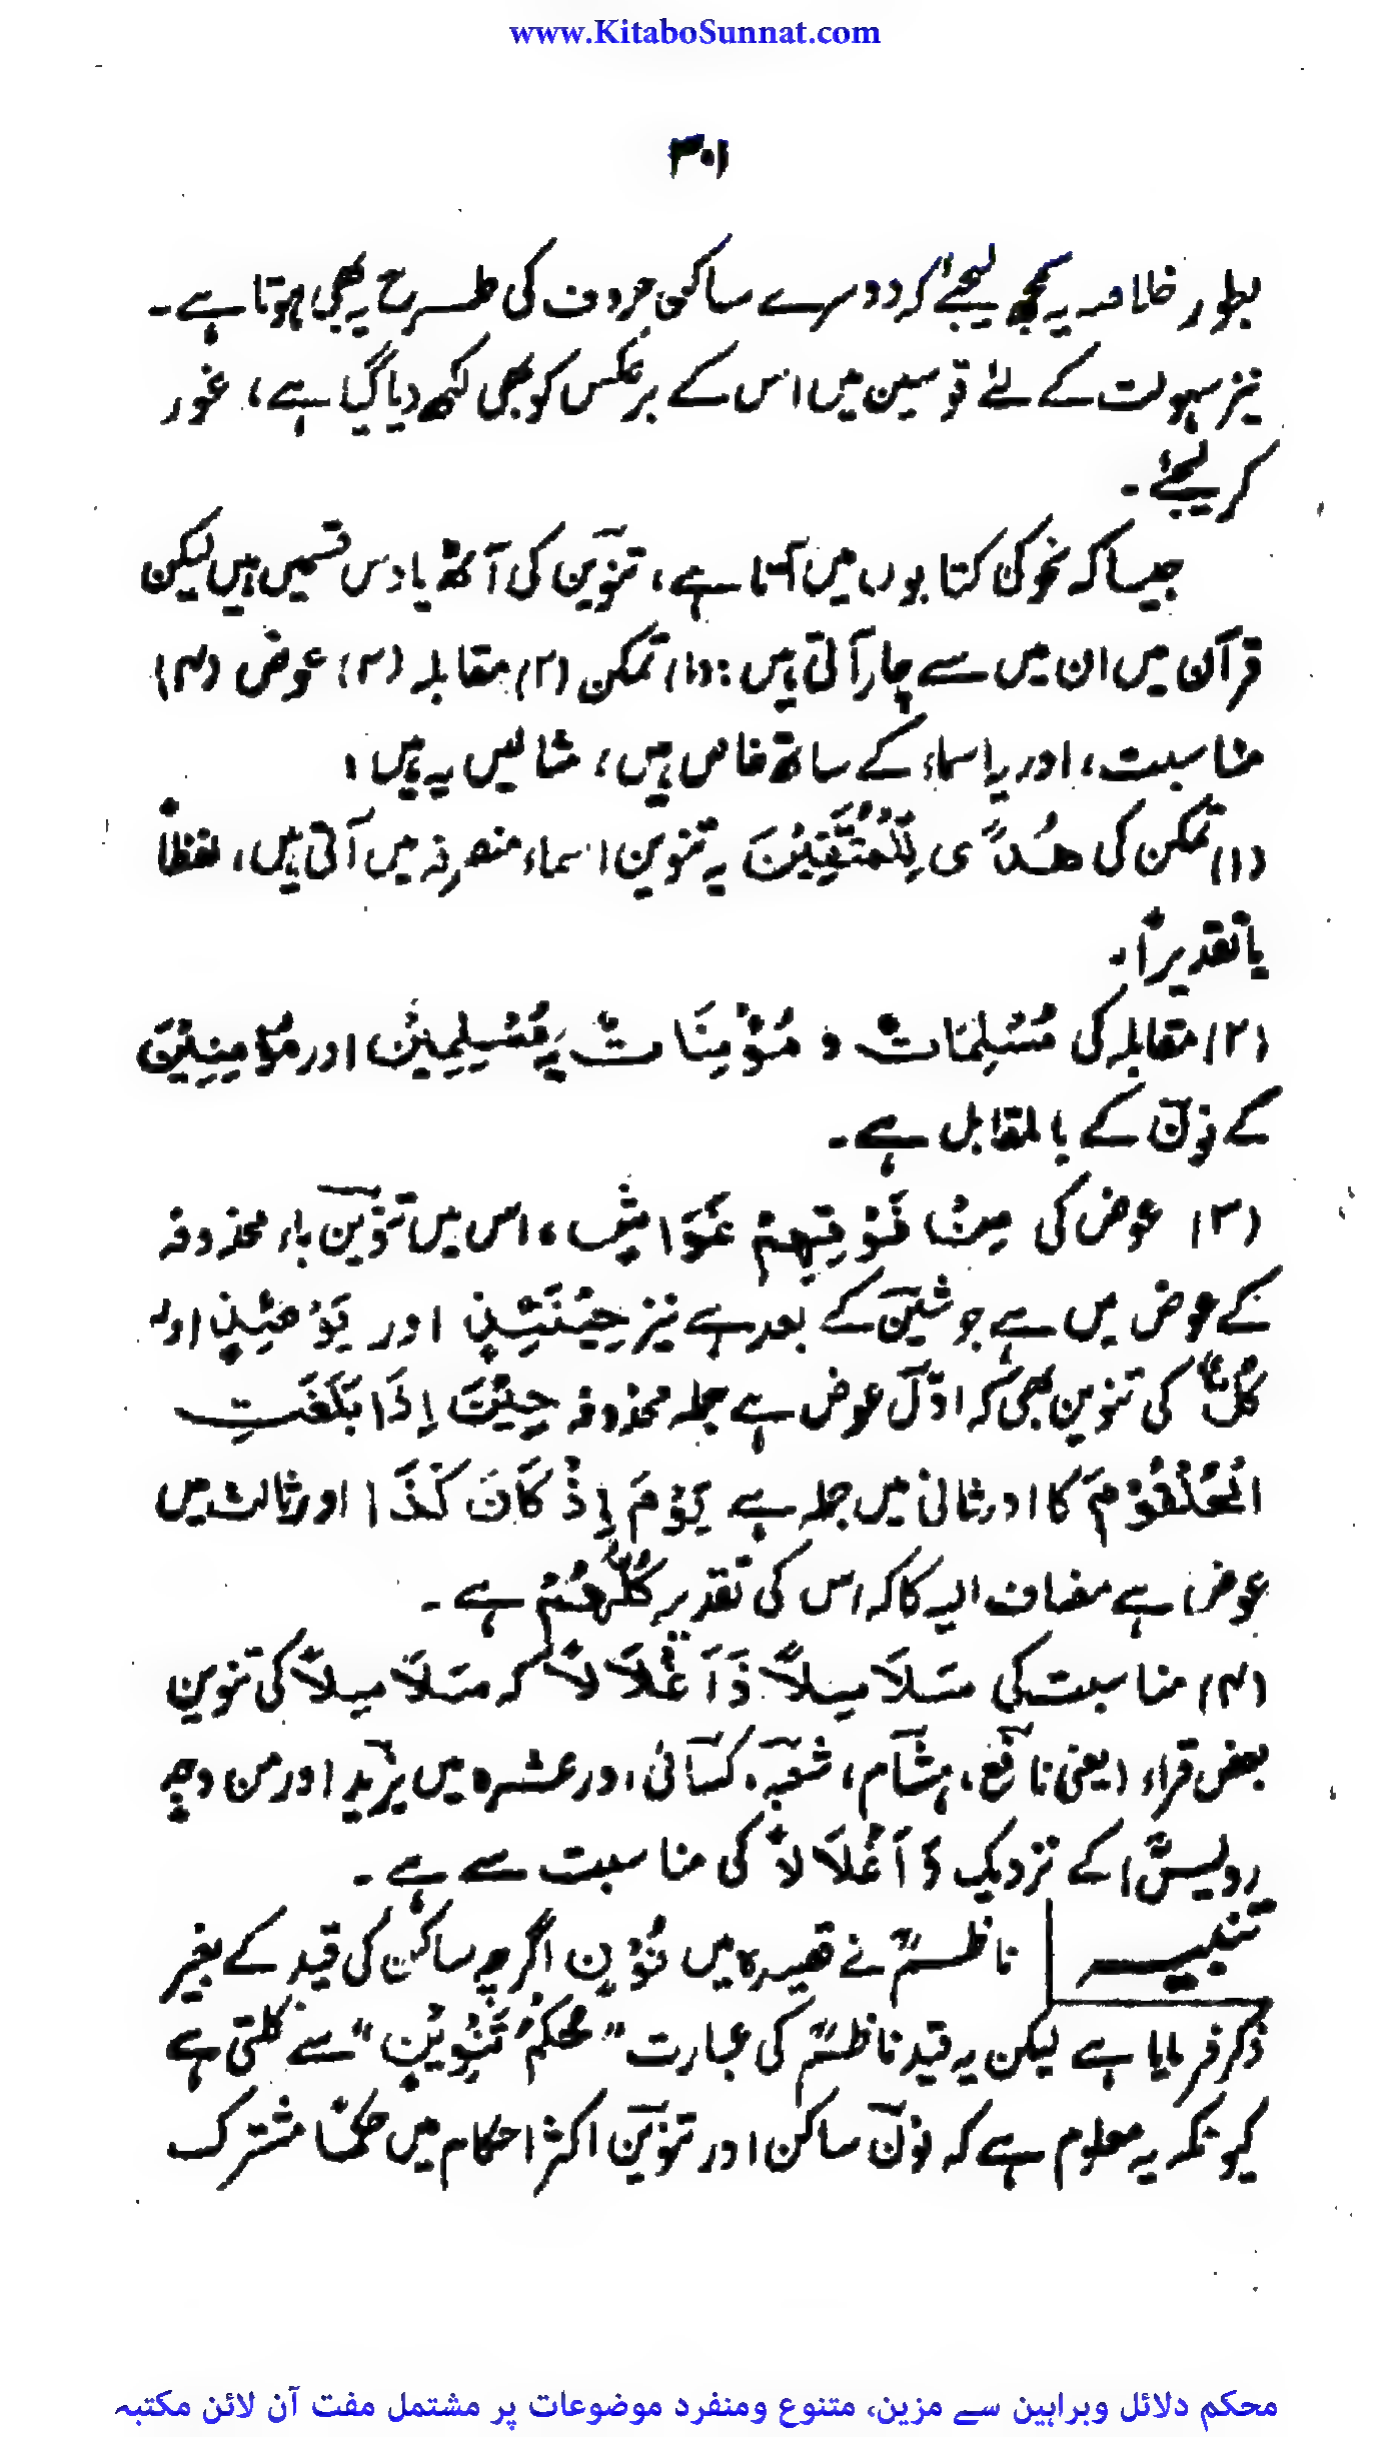 www.KitaboSunnat.com
۳۰۱
بطور خلاصہ یہ سمجھ لیجئے کہ دوسرے ساکن حروف کی طرح یہ بھی ہوتا ہے۔
نیز سہولت کے لئے قوسین میں اس کے برعکس کو بھی لکھ دیا گیا ہے، غور
کر لیجئے۔
جیسا کہ نحو کی کتابوں میں آتا ہے، تنوین کی آٹھ یا دس قسمیں ہیں لیکن
قرآن میں ان میں سے چار آتی ہیں: (۱) تمکن (۲) مقابلہ (۳) عوض (۴)
مناسبت، اور یہ اسماء کے ساتھ خاص ہیں، مثالیں یہ ہیں:
(۱) تمکن کی ھُدًی لِّلْمُتَّقِیْنَ یہ تنوین اسماء منصرفہ میں آتی ہیں، لفظاً
یا تقدیراً۔
(۲) مقابلہ کی مُسْلِمَاتٌ و مُؤْمِنَاتٌ یہ مُسْلِمِیْنَ اور مُؤْمِنِیْنَ
کے نون کے بالمقابل ہے۔
(۳) عوض کی مِنْ فَوْقِهِمْ غَوَاشٍ، اس میں تنوین یاء محذوفہ
کے عوض میں ہے جو شین کے بعد ہے نیز حِیْنَئِذٍ اور یَوْمَئِذٍ اور
کُلٌّ کی تنوین بھی کہ اوّل عوض ہے جملہ محذوفہ حِیْنَ اِذَا بَلَغَتِ
الْحُلْقُوْمَ کا اور ثانی میں جملہ ہے یَوْمَ اِذْ کَانَ کَذَا اور ثالث میں
عوض ہے مضاف الیہ کا کہ اس کی تقدیر کُلُّهُمْ ہے۔
(۴) مناسبت کی سَلَاسِلًا وَّاَغْلَالًا کہ سَلَاسِلًا کی تنوین
بعض قراء (یعنی نافع، ہشام، شعبہ، کسائی، اور عشرہ میں یزید اور من وجہٍ
رویسؒ) کے نزدیک وَاَغْلَالًا کی مناسبت سے ہے۔
تنبیہ | ناظمؒ نے قصیدہ میں نُوْنٍ اگرچہ ساکن کی قید کے بغیر
ذکر فرمایا ہے لیکن یہ قید ناظمؒ کی عبارت "حُکْمُ تَنْوِیْنٍ" سے نکلتی ہے
کیونکہ یہ معلوم ہے کہ نون ساکن اور تنوین اکثر احکام میں حکمًا مشترک
محکم دلائل وبراہین سے مزین، متنوع ومنفرد موضوعات پر مشتمل مفت آن لائن مکتبہ